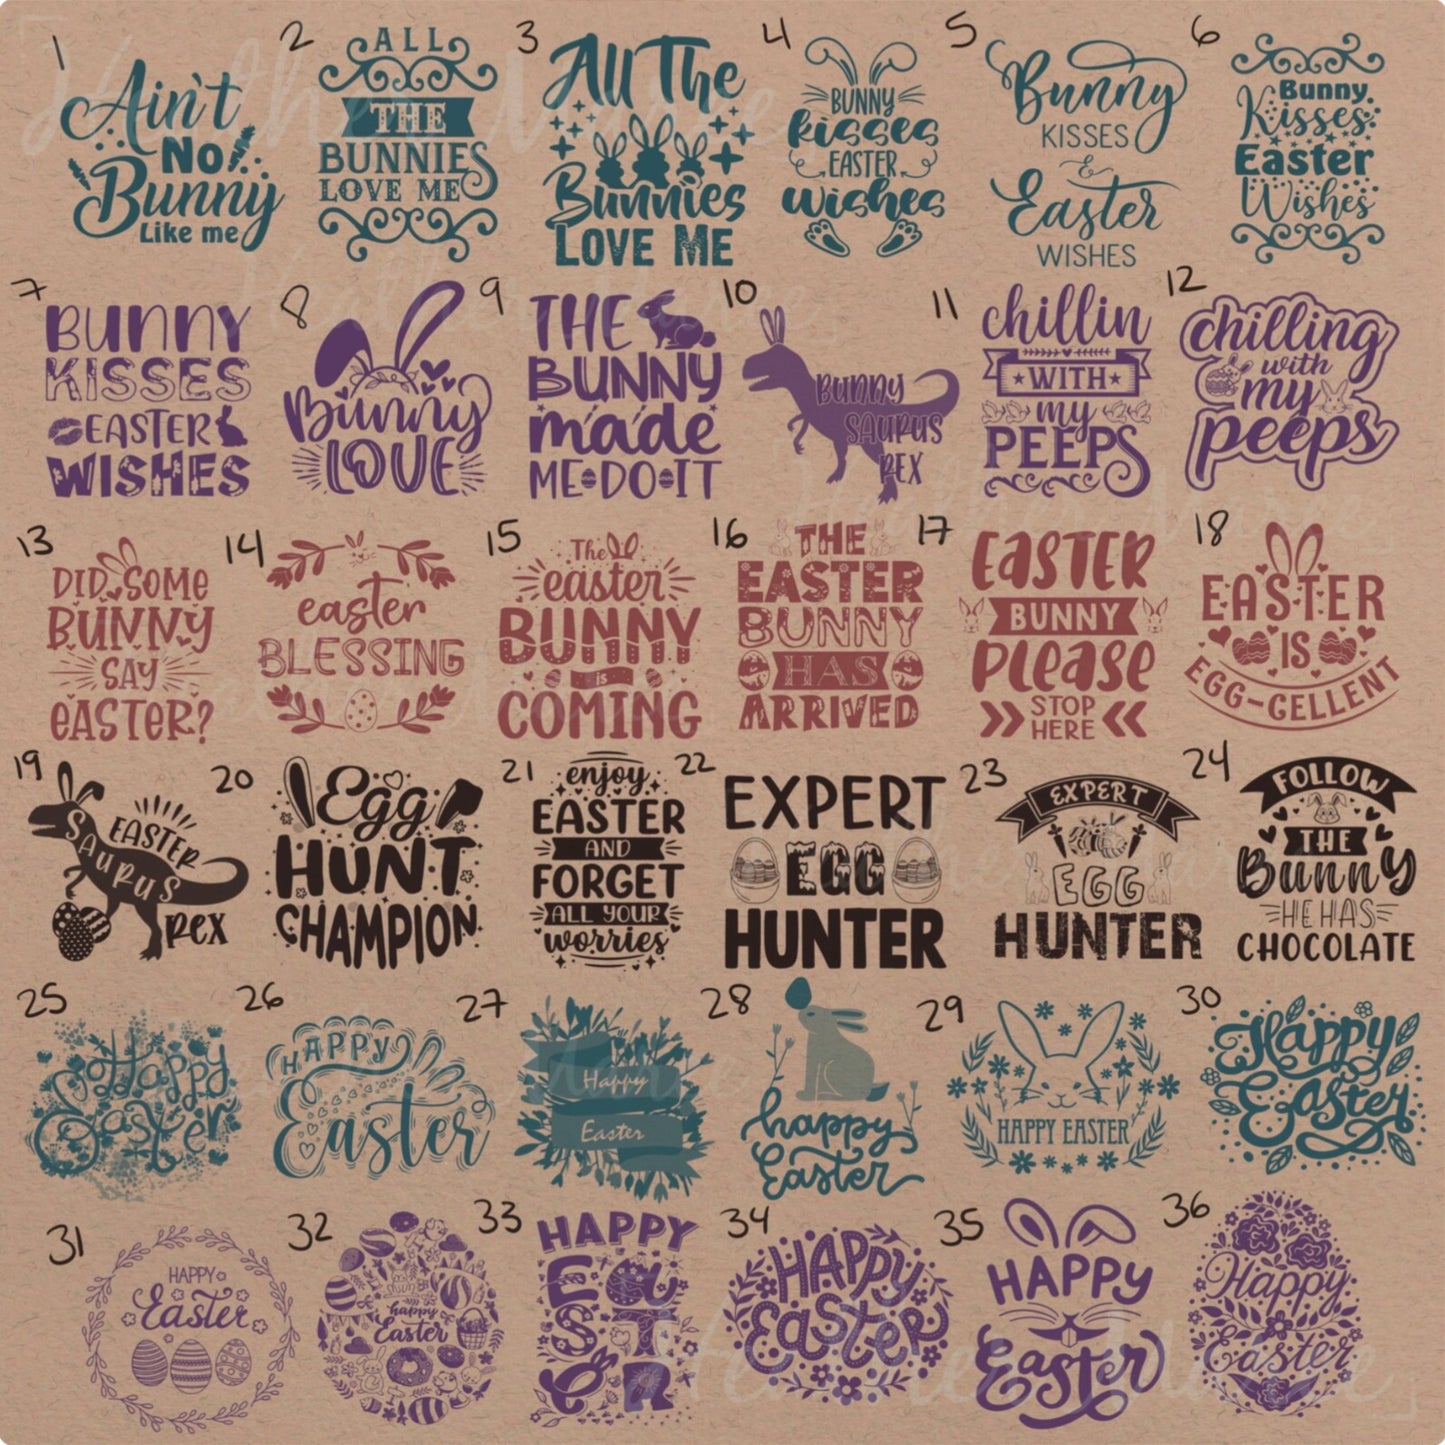 1
Ain't
No
Bunny
Like me
2
ALL
THE
BUNNIES
LOVE ME
3
All The
Bunnies
LOVE ME
4
BUNNY
kisses
EASTER
wishes
5
Bunny
KISSES
&
Easter
WISHES
6
Bunny
Kisses
Easter
Wishes
7
BUNNY
KISSES
EASTER
WISHES
8
Bunny
LOVE
9
THE
BUNNY
made
ME DO IT
10
BUNNY
SAURUS
REX
11
chillin
WITH
my
PEEPS
12
chilling
with
my
peeps
13
DID SOME
BUNNY
SAY
EASTER?
14
easter
BLESSING
15
The
easter
BUNNY
is
COMING
16
THE
EASTER
BUNNY
HAS
ARRIVED
17
EASTER
BUNNY
Please
STOP
HERE
18
EASTER
IS
EGG-CELLENT
19
EASTER
SAURUS
REX
20
Egg
HUNT
CHAMPION
21
enjoy
EASTER
AND
FORGET
ALL YOUR
worries
22
EXPERT
EGG
HUNTER
23
EXPERT
EGG
HUNTER
24
FOLLOW
THE
Bunny
HE HAS
CHOCOLATE
25
Happy
Easter
26
HAPPY
Easter
27
Happy
Easter
28
happy
Easter
29
HAPPY EASTER
30
Happy
Easter
31
HAPPY
Easter
32
happy
Easter
33
HAPPY
EA
S
TE
R
34
HAPPY
Easter
35
HAPPY
Easter
36
Happy
Easter